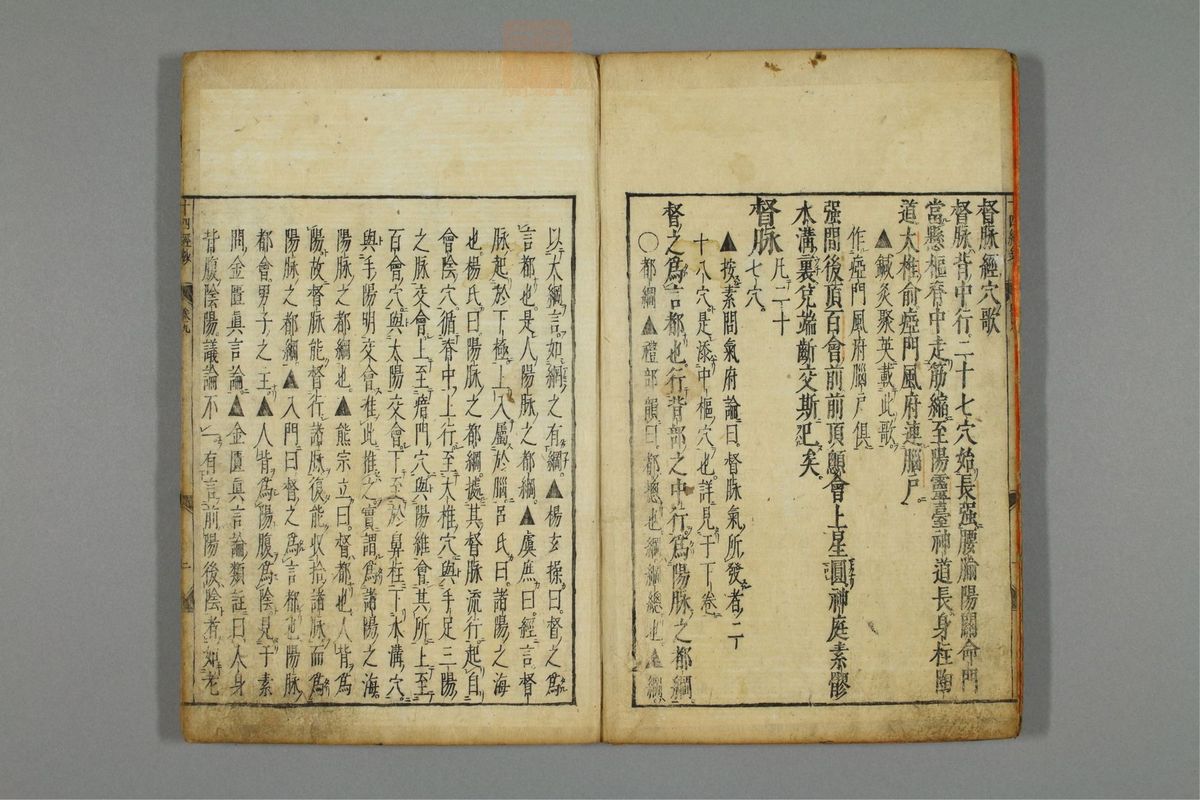 督脉經穴歌
督脉背中行二十七穴始長强腰腧陽關命門
當懸樞脊中走筋縮至陽靈臺神道長身柱陶
道大椎俞瘂門風府連腦戶
▲鍼灸聚英載此歌
作瘂門風府腦戶俱
强間後頂百會前前頂顖會上星圓神庭素髎
水溝裏兌端齗交斯已矣
督脉凡二十七穴
▲按素問氣府論曰督脉氣所發者二
十八穴是添中樞穴也詳見于下卷
督之爲言都也行背部之中行爲陽脉之都綱
○都綱▲禮部韻曰都總也綱綱總也▲綱
以大綱言如網之有綱▲楊玄操曰督之爲
言都也是人陽脉之都綱▲虞庶曰經言督
脉起於下極上入屬於腦呂氏曰諸陽之海
也楊氏曰陽脉之都綱據其督脉流行起自
會陰穴循脊中上行至大椎穴與手足三陽
之脉交會上至瘖門穴與陽維會其所上至
百會穴與太陽交會下至於鼻柱下水溝穴
與手陽明交會推此推之實謂爲諸陽之海
陽脉之都綱也▲熊宗立曰督都也人背爲
陽故督脉能督行諸脉復能收拾諸脉而爲
陽脉之都綱▲入門曰督之爲言都也陽脉
都會男子之主▲人背爲陽腹爲陰見于素
問金匱眞言論▲金匱眞言論類註曰人身
背腹陰陽議論不一有言前陽後陰者如老
十四經